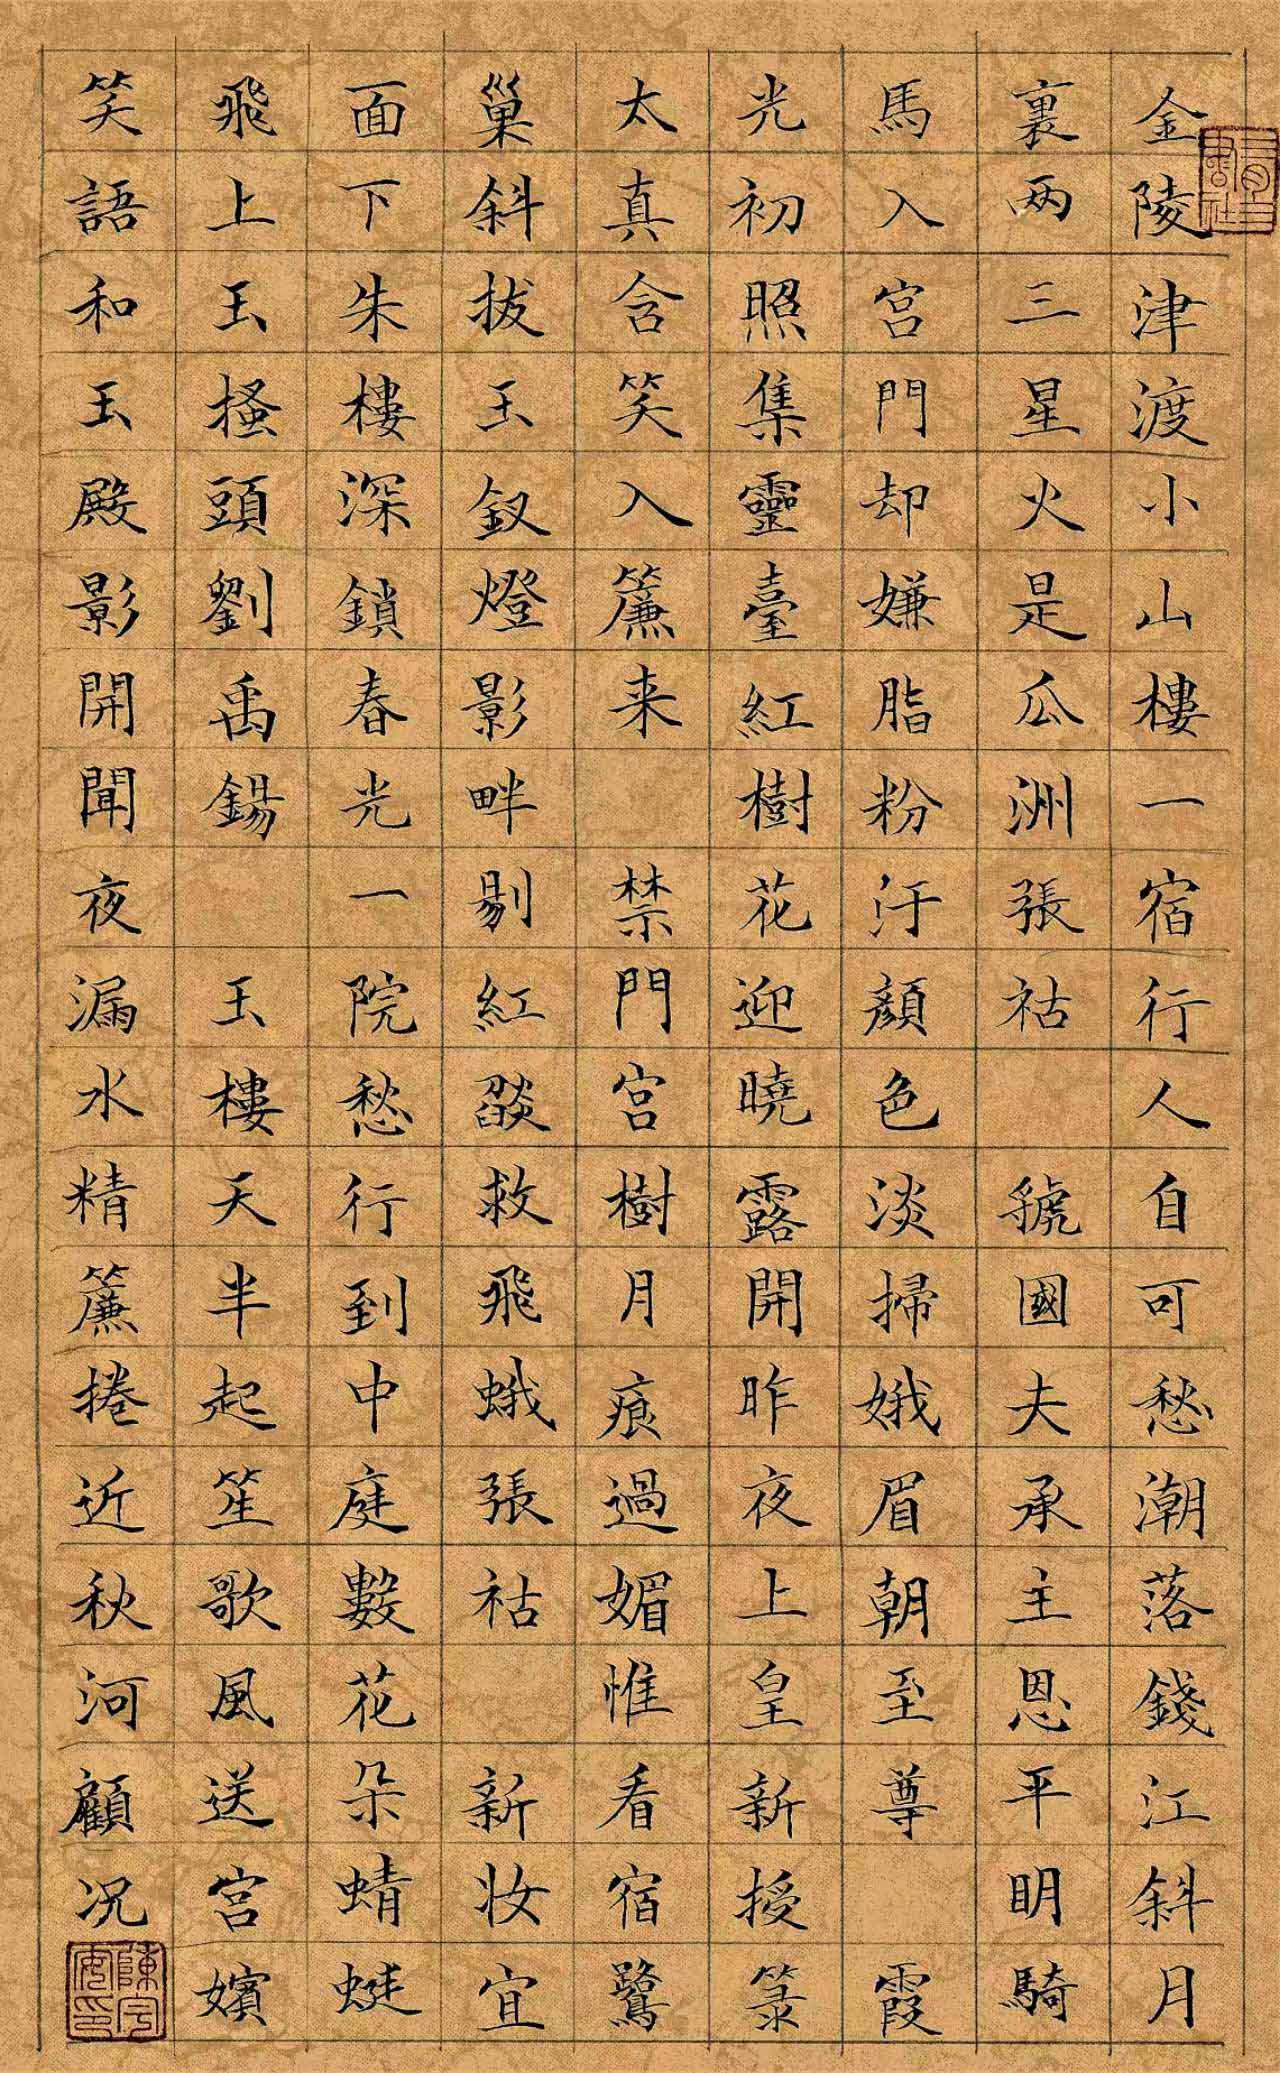 金陵津渡小山樓一宿行人自可愁潮落錢江斜月
裏两三星火是瓜洲張祜 虢國夫承主恩平明騎
馬入宮門却嫌脂粉汙顏色淡掃娥眉朝至尊 霞
光初照集靈臺紅樹花迎曉露開昨夜上皇新授箓
太真含笑入簾来 禁門宮樹月痕過媚惟看宿鷺
巢斜拔玉釵燈影畔剔紅燄救飛蛾張祜 新妝宜
面下朱樓深鎖春光一院愁行到中庭數花朵蜻蜓
飛上玉搔頭劉禹鍚 玉樓天半起笙歌風送宮嬪
笑語和玉殿影開聞夜漏水精簾捲近秋河顧况